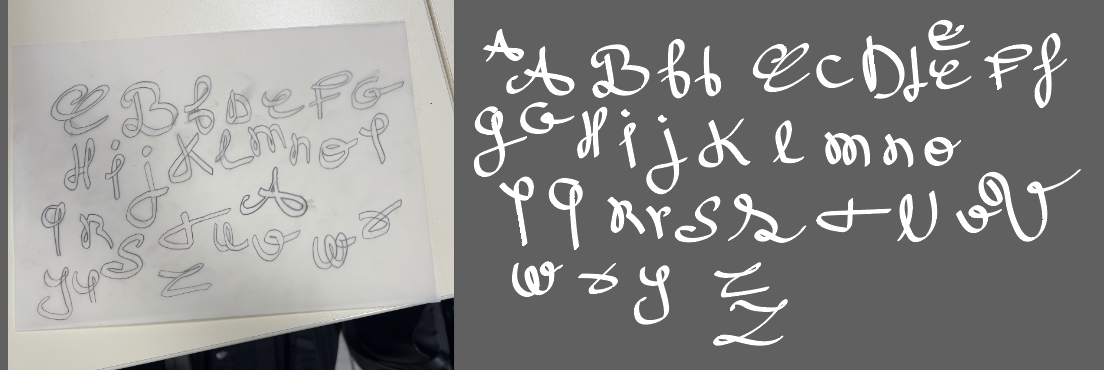 E B b D e F G
H i j K l m n o P
A
q R S t u v w x
y y z
A A B b b E C D d e e F f
g G H i j K l m n o
P q R r S s t U v V
w x y z
Z